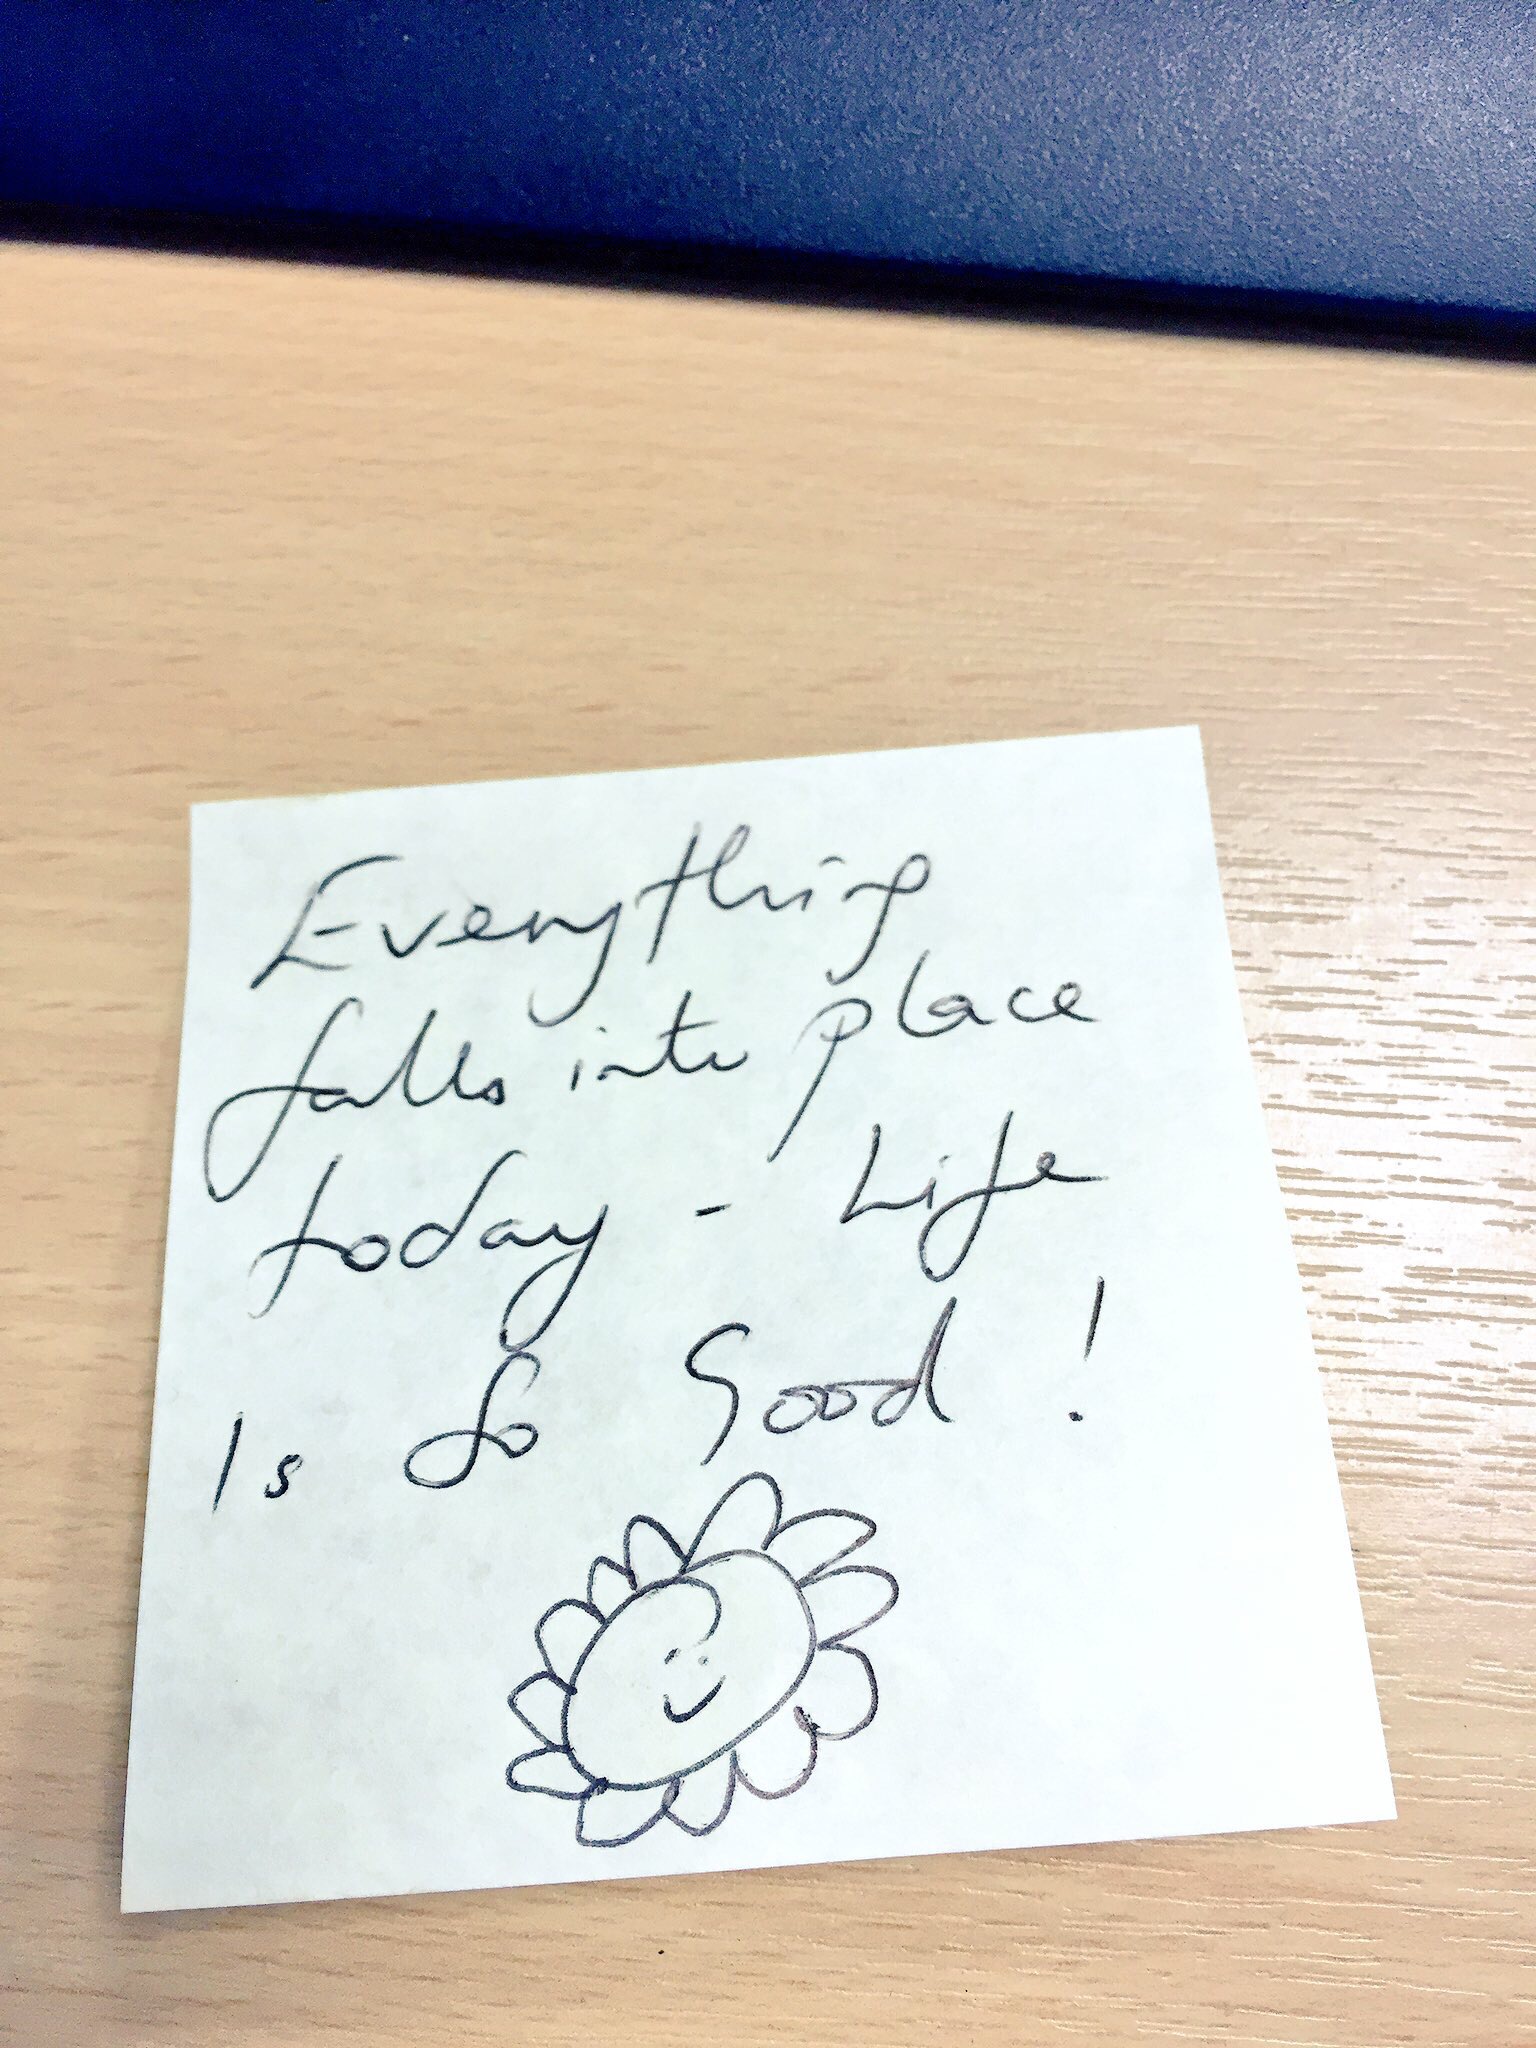 Everything
falls into place
today - Life
Is so Good!